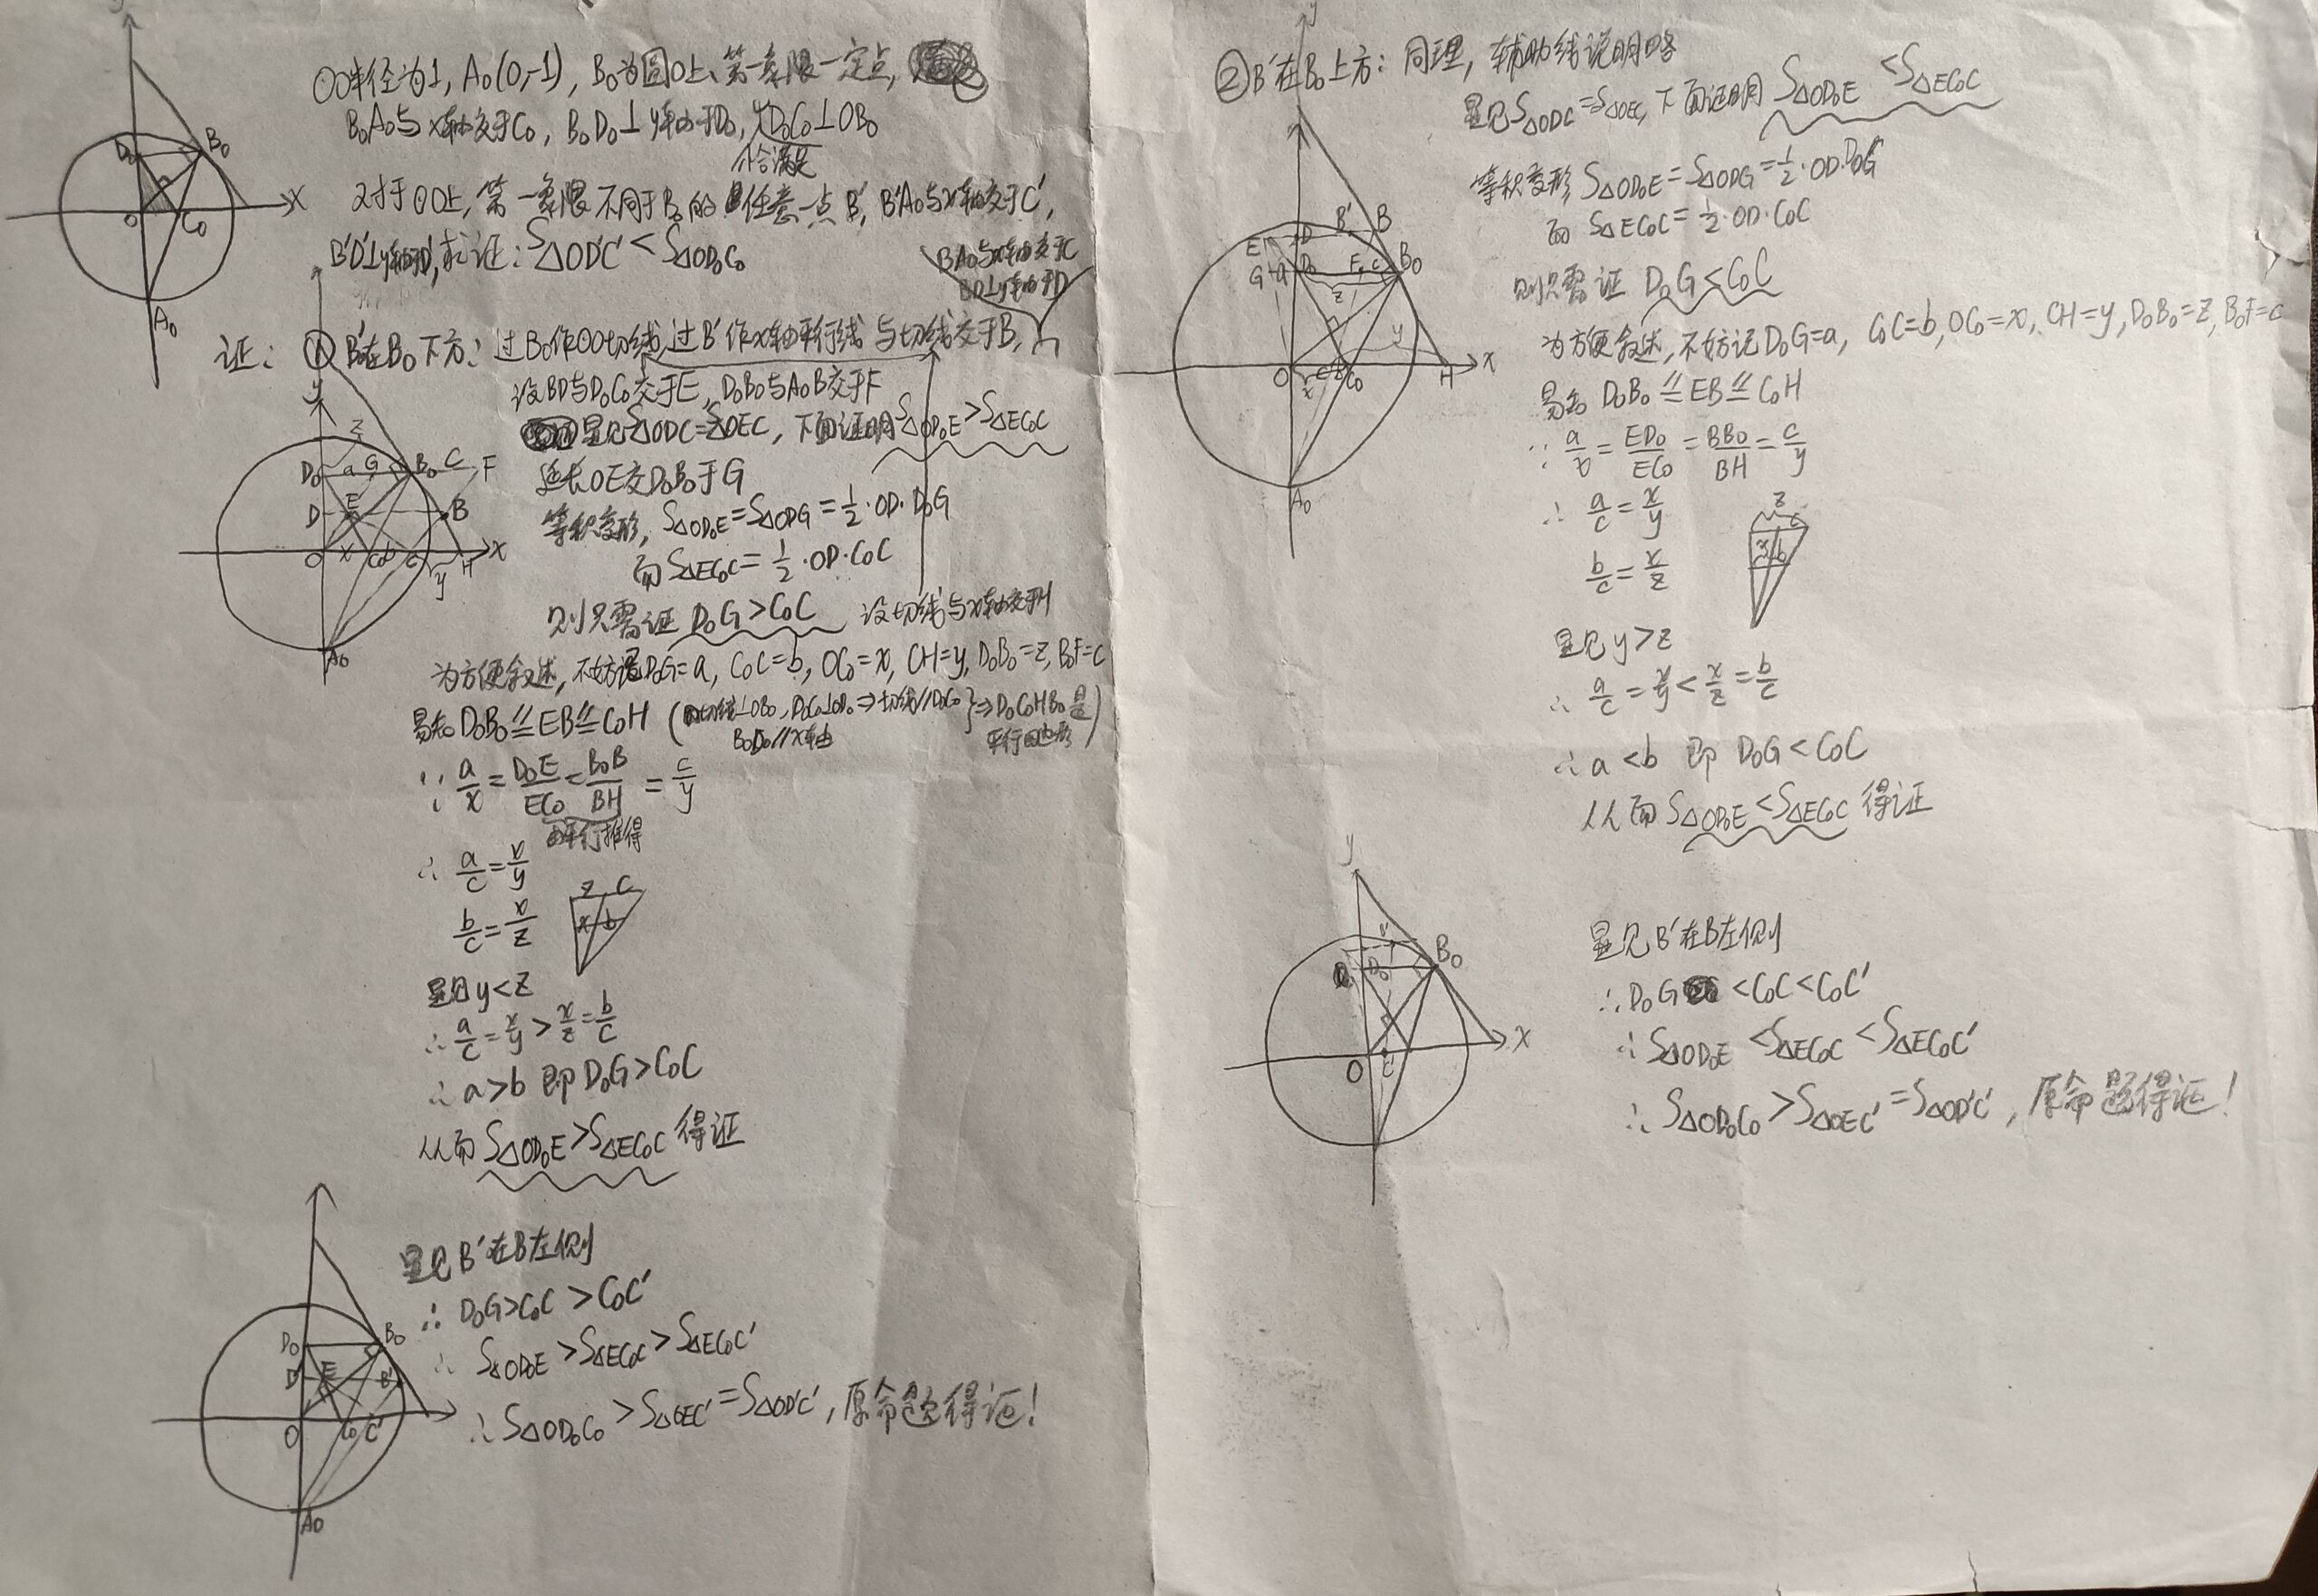 ⊙O半径为1, A₀(0,-1), B₀为圆O上、第一象限一定点,
B₀A₀与x轴交于C₀, B₀D₀⊥y轴于D₀, 又D₀C₀⊥OB₀
恰满足
对于⊙O上, 第一象限不同于B₀的任意一点B′, B′A₀与x轴交于C′,
B′D′⊥y轴于D′, 求证: S△OD′C′ < S△OD₀C₀
BA₀与x轴交于C
BD⊥y轴于D
证: ① B′在B₀下方: 过B₀作⊙O切线, 过B′作x轴平行线与切线交于B,
设BD与D₀C₀交于E, D₀B₀与A₀B交于F
显见S△ODC=S△OEC, 下面证明S△OD₀E>S△EC₀C
延长OE交D₀B₀于G
等积变形, S△OD₀E=S△ODG=½·OD·D₀G
而S△EC₀C=½·OD·C₀C
则只需证 D₀G>C₀C 设切线与x轴交于H
为方便叙述, 不妨记D₀G=a, C₀C=b, OC₀=x, CH=y, D₀B₀=z, B₀F=c
易知D₀B₀∥=EB∥=C₀H (切线⊥OB₀, D₀C₀⊥OB₀⇒切线∥D₀C₀
B₀D₀∥x轴 }⇒D₀C₀HB₀是
平行四边形)
∵ a/x=D₀E/EC₀=B₀B/BH=c/y
由平行推得
∴ a/c=x/y
b/c=x/z
显见y<z
∴ a/c=x/y>x/z=b/c
∴ a>b 即D₀G>C₀C
从而S△OD₀E>S△EC₀C得证
显见B′在B左侧
∴ D₀G>C₀C>C₀C′
∴ S△OD₀E>S△EC₀C>S△EC₀C′
∴ S△OD₀C₀>S△OEC′=S△OD′C′, 原命题得证!
②B′在B₀上方: 同理, 辅助线说明略
显见S△ODC=S△OEC, 下面证明 S△OD₀E<S△EC₀C
等积变形 S△OD₀E=S△ODG=½·OD·D₀G
而 S△EC₀C=½·OD·C₀C
则只需证 D₀G<C₀C
为方便叙述, 不妨记D₀G=a, C₀C=b, OC₀=x, CH=y, D₀B₀=z, B₀F=c
易知 D₀B₀∥=EB∥=C₀H
∵ a/x=ED₀/EC₀=BB₀/BH=c/y
∴ a/c=x/y
b/c=x/z
显见y>z
∴ a/c=x/y<x/z=b/c
∴ a<b 即 D₀G<C₀C
从而S△OD₀E<S△EC₀C得证
显见B′在B左侧
∴ D₀G<C₀C<C₀C′
∴ S△OD₀E<S△EC₀C<S△EC₀C′
∴ S△OD₀C₀>S△OEC′=S△OD′C′, 原命题得证!